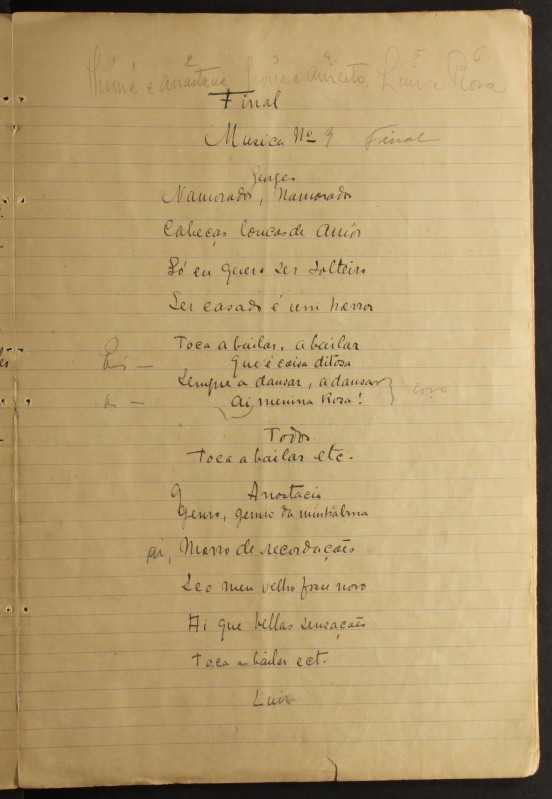 2 3 4 5 6
e Anastacia, George e Aniceto, Luiz e Rosa
Final
Musica Nº 9 Final
Georges
Namorados, Namorados
Cabeças loucas de Amôr
Só eu quero ser solteiro
Ser casado é um horror
Toca a bailar, a bailar
Que é coisa ditosa
Sempre a dansar, a dansar
Ai, menina Rosa!
Todos
Toca a bailar etc.
Anastacia
Genro, genro da minh'alma
ai, Morro de recordações
Se o meu velho fosse novo
Ai que bellas sensações
Toca a bailar ect.
Luiz